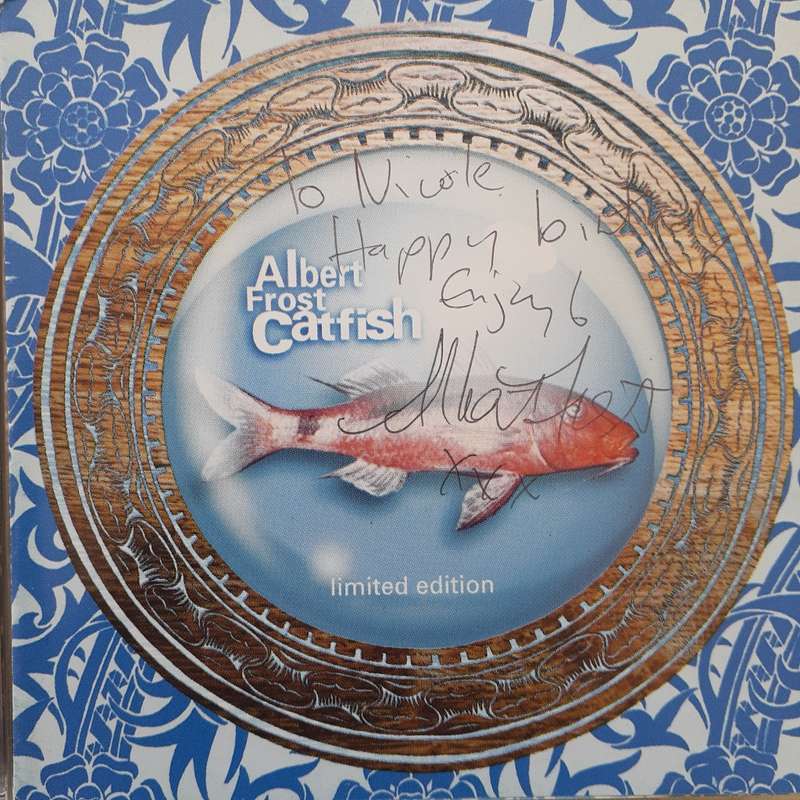 To Nicole
Happy birthday
Enjoy
Albert
Frost
Catfish
xxx
limited edition